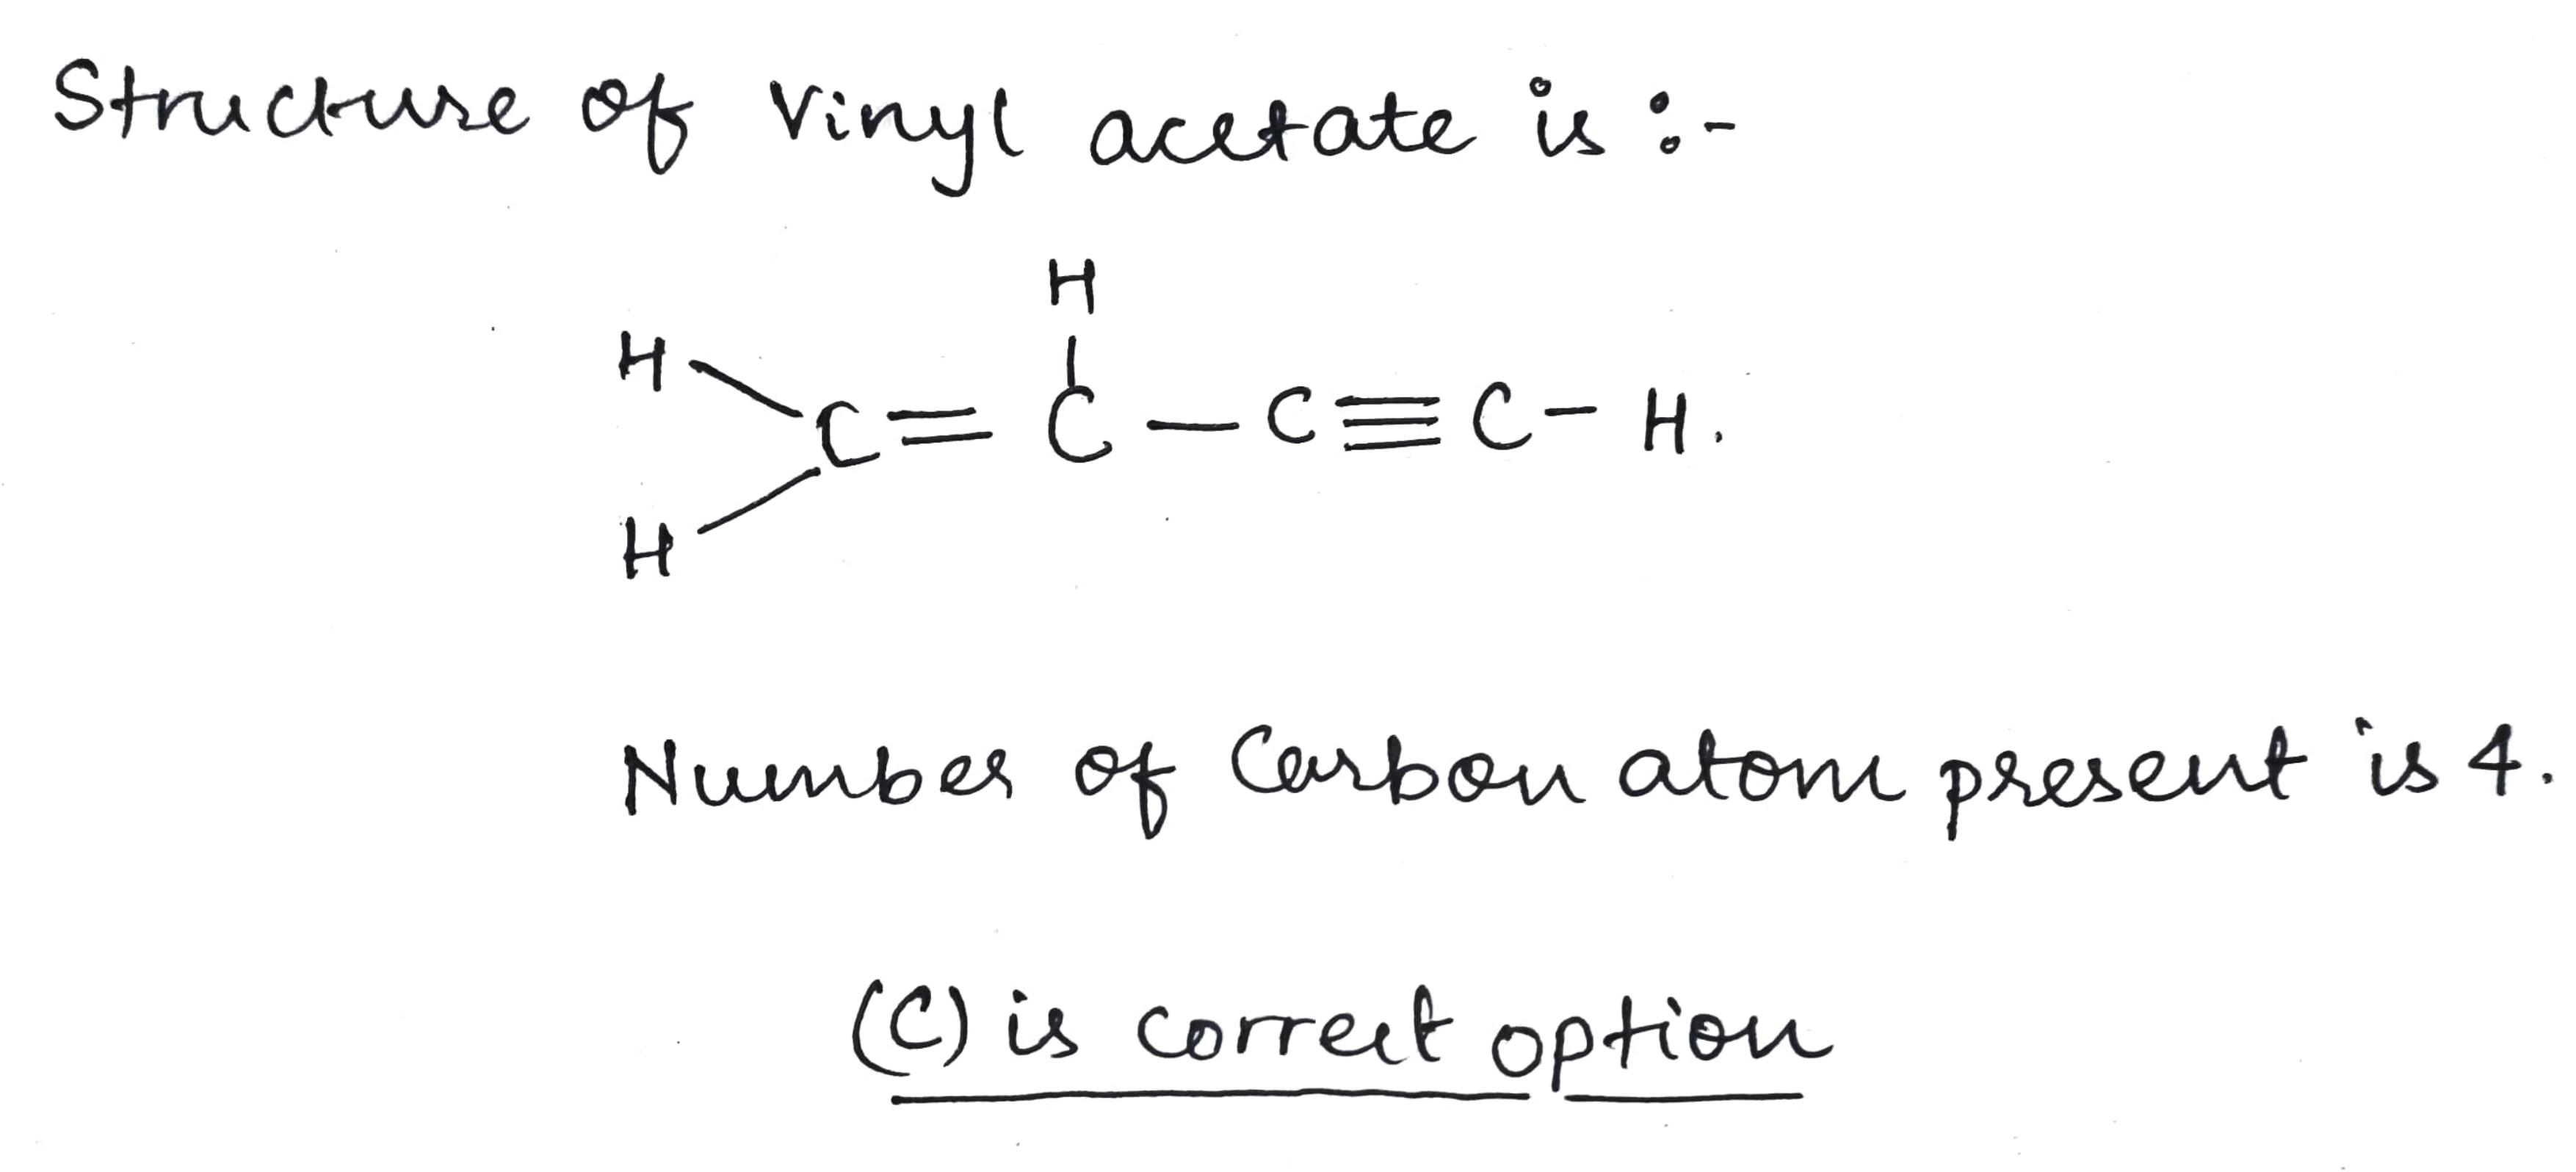 Structure of Vinyl acetate is :-
H
H
C = C — C ≡ C – H.
H
Number of Carbon atom present is 4.
(C) is correct option